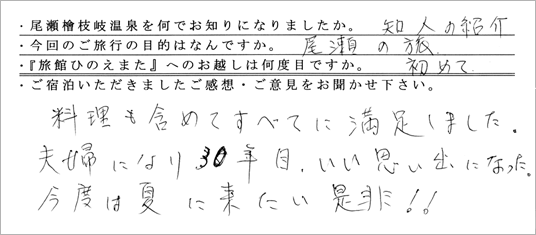 ・尾瀬檜枝岐温泉を何でお知りになりましたか。 知人の紹介
・今回のご旅行の目的はなんですか。 尾瀬の旅.
・『旅館ひのえまた』へのお越しは何度目ですか。 初めて.
・ご宿泊いただきましたご感想・ご意見をお聞かせ下さい。
料理も含めてすべてに満足しました。
夫婦になり30年目、いい思い出になった。
今度は夏に来たい是非!!